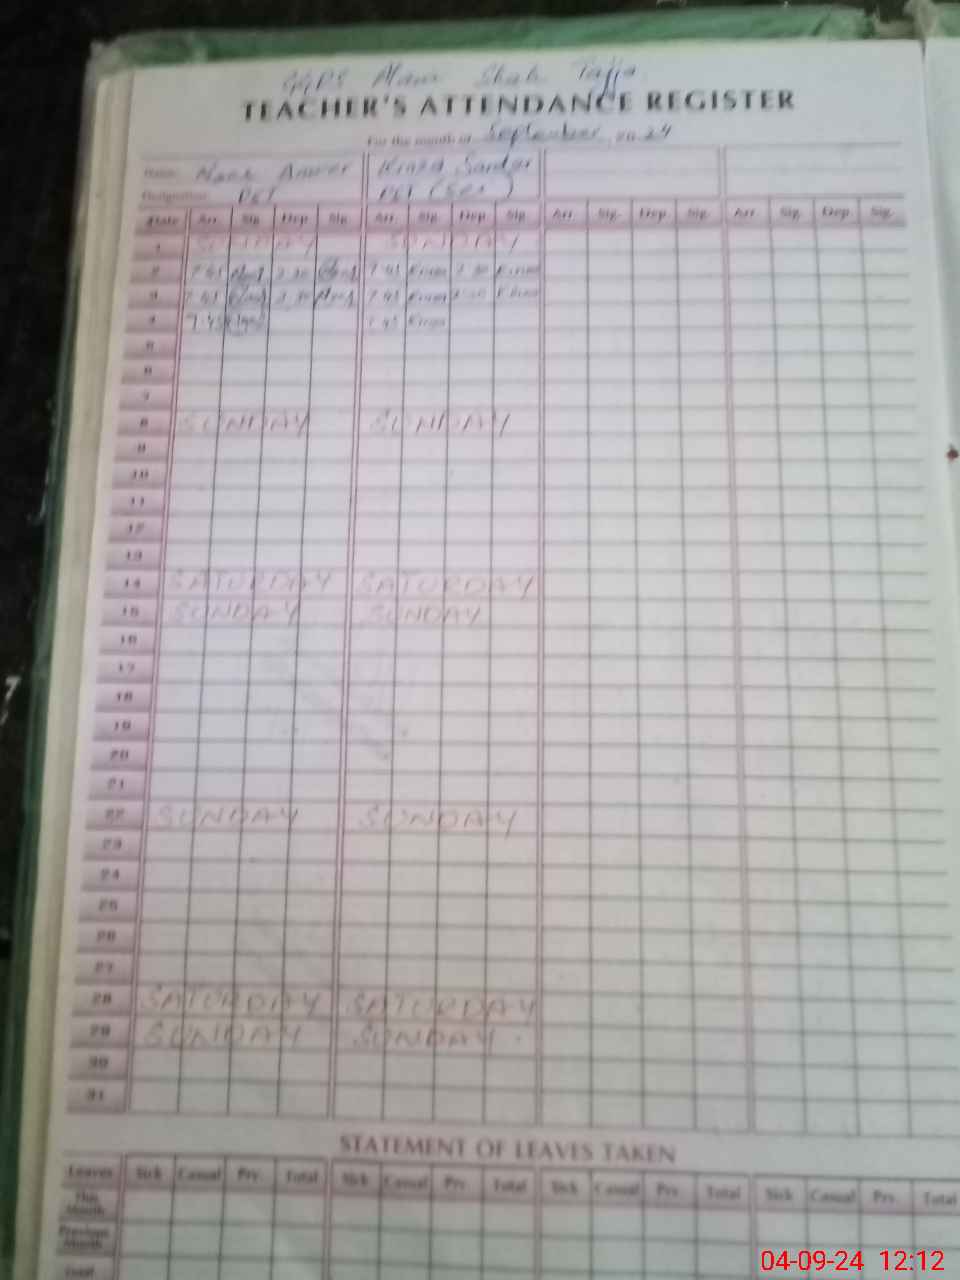 Shah Tajja
TEACHER'S ATTENDANCE REGISTER
For the month of September 2024
Name: Anwer Kinza Sardar
Designation: PET PET (SES)
Date Arr. Sig. Dep. Sig. Arr. Sig. Dep. Sig. Arr. Sig. Dep. Sig. Arr. Sig. Dep. Sig.
1 SUNDAY SUNDAY
2 7.45 7.45 Kinza Kinza
3 7.45 7.45 Kinza Kinza
4 7.45 7.45 Kinza
5
6
7
8 SUNDAY SUNDAY
9
10
11
12
13
14 SATURDAY SATURDAY
15 SUNDAY SUNDAY
16
17
18
19
20
21
22 SUNDAY SUNDAY
23
24
25
26
27
28 SATURDAY SATURDAY
29 SUNDAY SUNDAY
30
31
STATEMENT OF LEAVES TAKEN
Leaves Sick Casual Prv. Total Sick Casual Prv. Total Sick Casual Prv. Total Sick Casual Prv. Total
This Month
Previous Month
Total
04-09-24 12:12